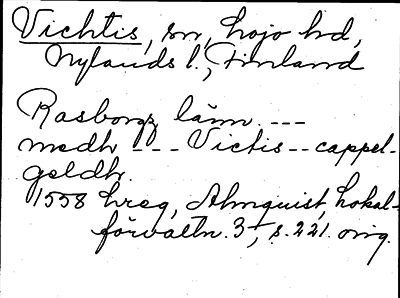 Vichtis, sn, Lojo hd,
Nylands l., Finland
Rasborgz länn ---
medh --- Victis -- cappel-
geldh.
1558 hreg, Almquist, Lokal-
förvaltn. 3, s. 221. orig.